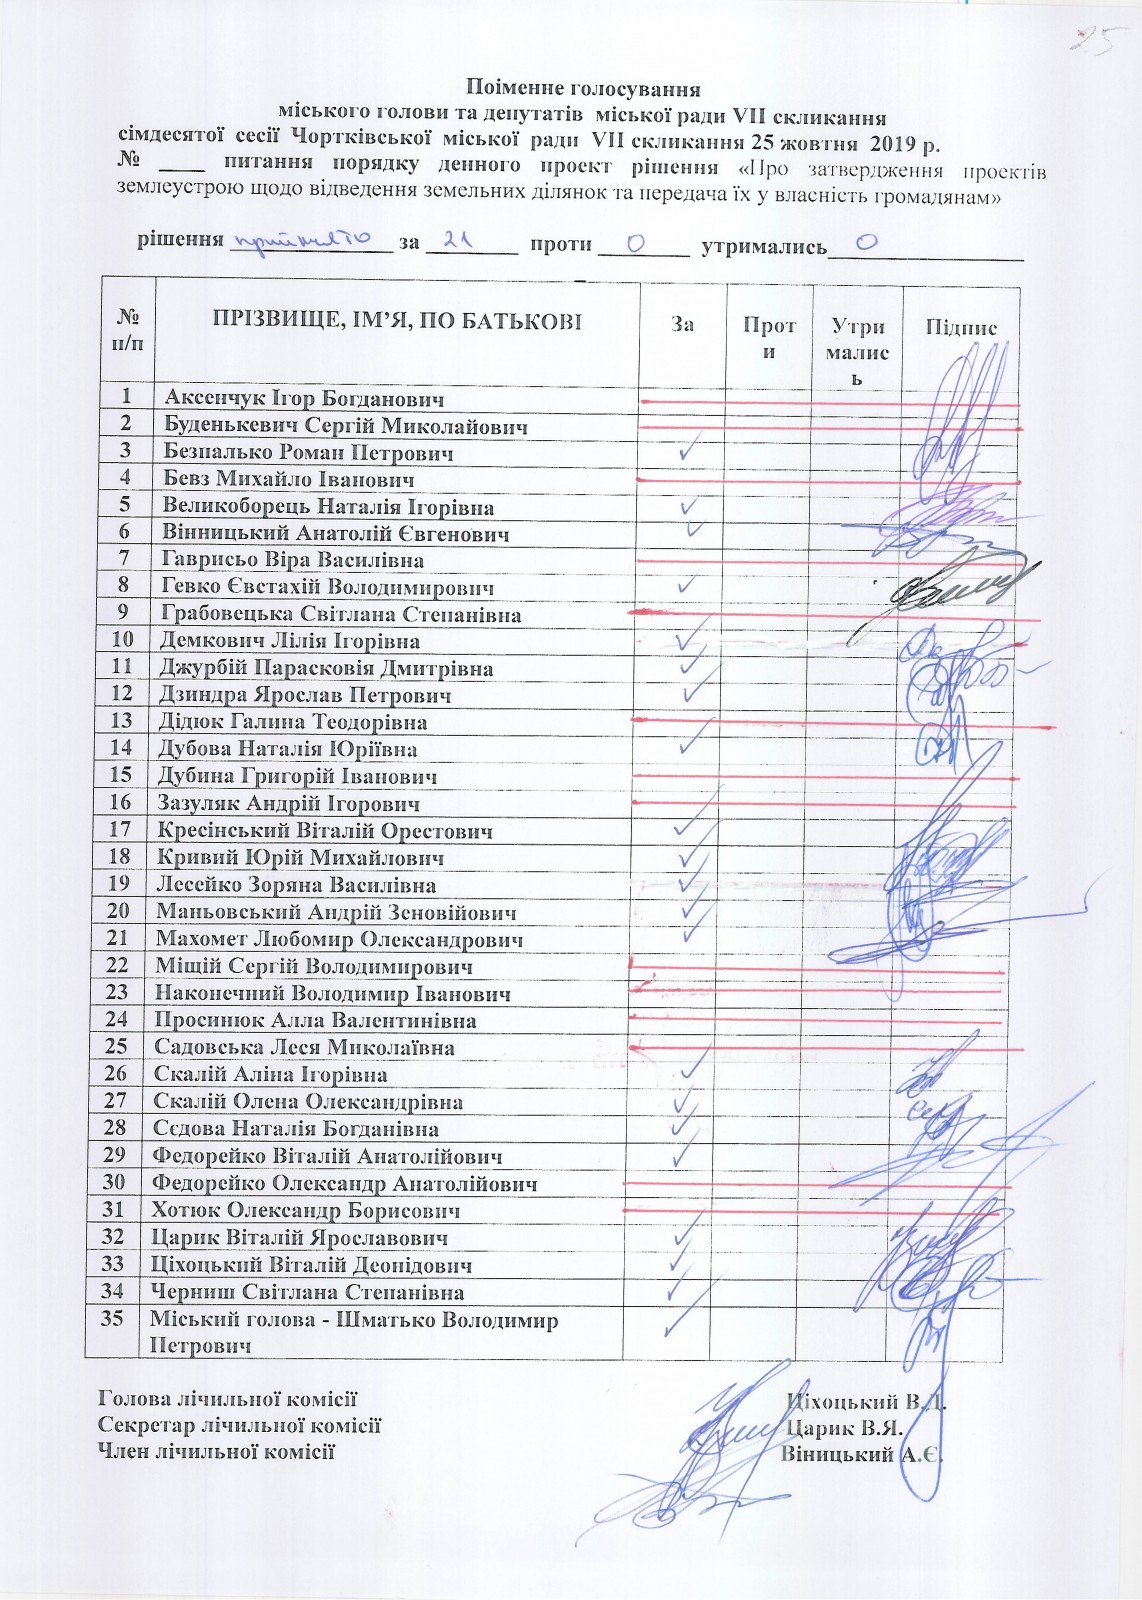 25
Поіменне голосування
міського голови та депутатів міської ради VII скликання
сімдесятої сесії Чортківської міської ради VII скликання 25 жовтня 2019 р.
№ ____ питання порядку денного проект рішення «Про затвердження проектів
землеустрою щодо відведення земельних ділянок та передача їх у власність громадянам»
рішення прийнято за 21 проти 0 утримались 0
№ п/п ПРІЗВИЩЕ, ІМ’Я, ПО БАТЬКОВІ За Проти Утрималис
ь Підпис
1 Аксенчук Ігор Богданович
2 Буденькевич Сергій Миколайович
3 Безпалько Роман Петрович ✓
4 Бевз Михайло Іванович
5 Великоборець Наталія Ігорівна ✓
6 Вінницький Анатолій Євгенович ✓
7 Гаврисьо Віра Василівна
8 Гевко Євстахій Володимирович ✓
9 Грабовецька Світлана Степанівна
10 Демкович Лілія Ігорівна ✓
11 Джурбій Парасковія Дмитрівна ✓
12 Дзиндра Ярослав Петрович ✓
13 Дідюк Галина Теодорівна
14 Дубова Наталія Юріївна ✓
15 Дубина Григорій Іванович
16 Зазуляк Андрій Ігорович
17 Кресінський Віталій Орестович ✓
18 Кривий Юрій Михайлович ✓
19 Лесейко Зоряна Василівна ✓
20 Маньовський Андрій Зеновійович ✓
21 Махомет Любомир Олександрович ✓
22 Міщій Сергій Володимирович
23 Наконечний Володимир Іванович
24 Просинюк Алла Валентинівна
25 Садовська Леся Миколаївна
26 Скалій Аліна Ігорівна ✓
27 Скалій Олена Олександрівна ✓
28 Сєдова Наталія Богданівна ✓
29 Федорейко Віталій Анатолійович ✓
30 Федорейко Олександр Анатолійович
31 Хотюк Олександр Борисович
32 Царик Віталій Ярославович ✓
33 Ціхоцький Віталій Деонідович ✓
34 Черниш Світлана Степанівна ✓
35 Міський голова - Шматько Володимир
Петрович ✓
Голова лічильної комісії Ціхоцький В.Д.
Секретар лічильної комісії Царик В.Я.
Член лічильної комісії Віницький А.Є.